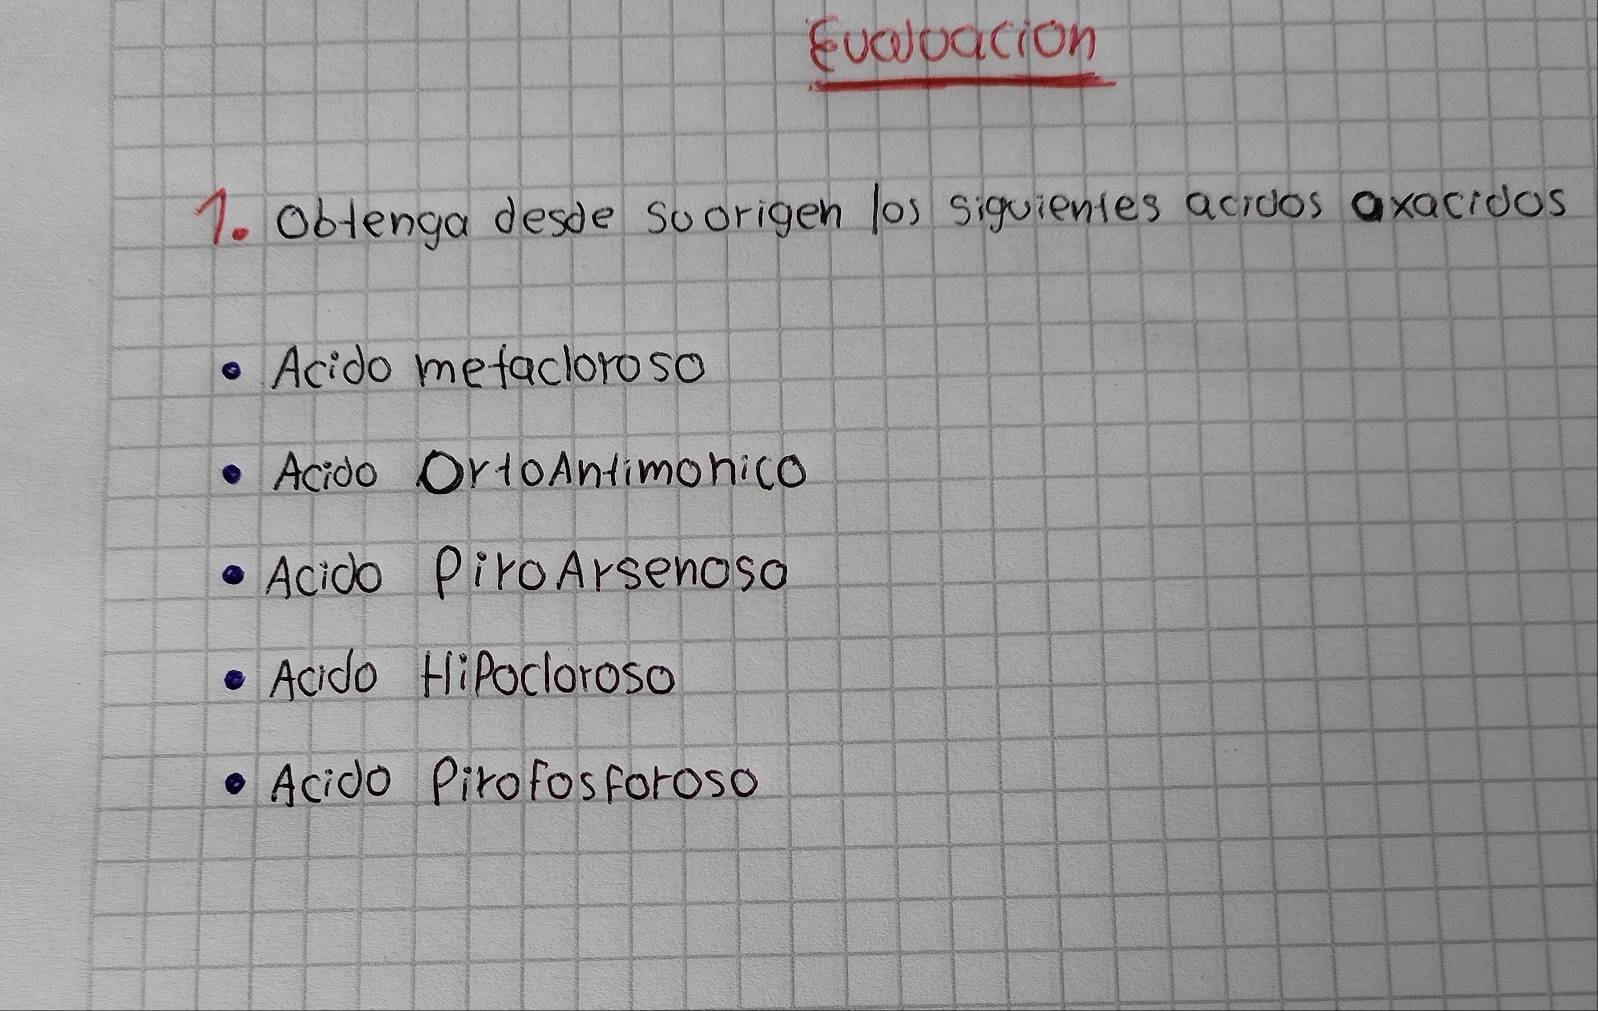 Evaluacion
1. Obtenga desde su origen los siguientes acidos oxacidos
• Acido metacloroso
• Acido OrtoAntimonico
• Acido PiroArsenoso
• Acido HiPocloroso
• Acido Pirofosforoso